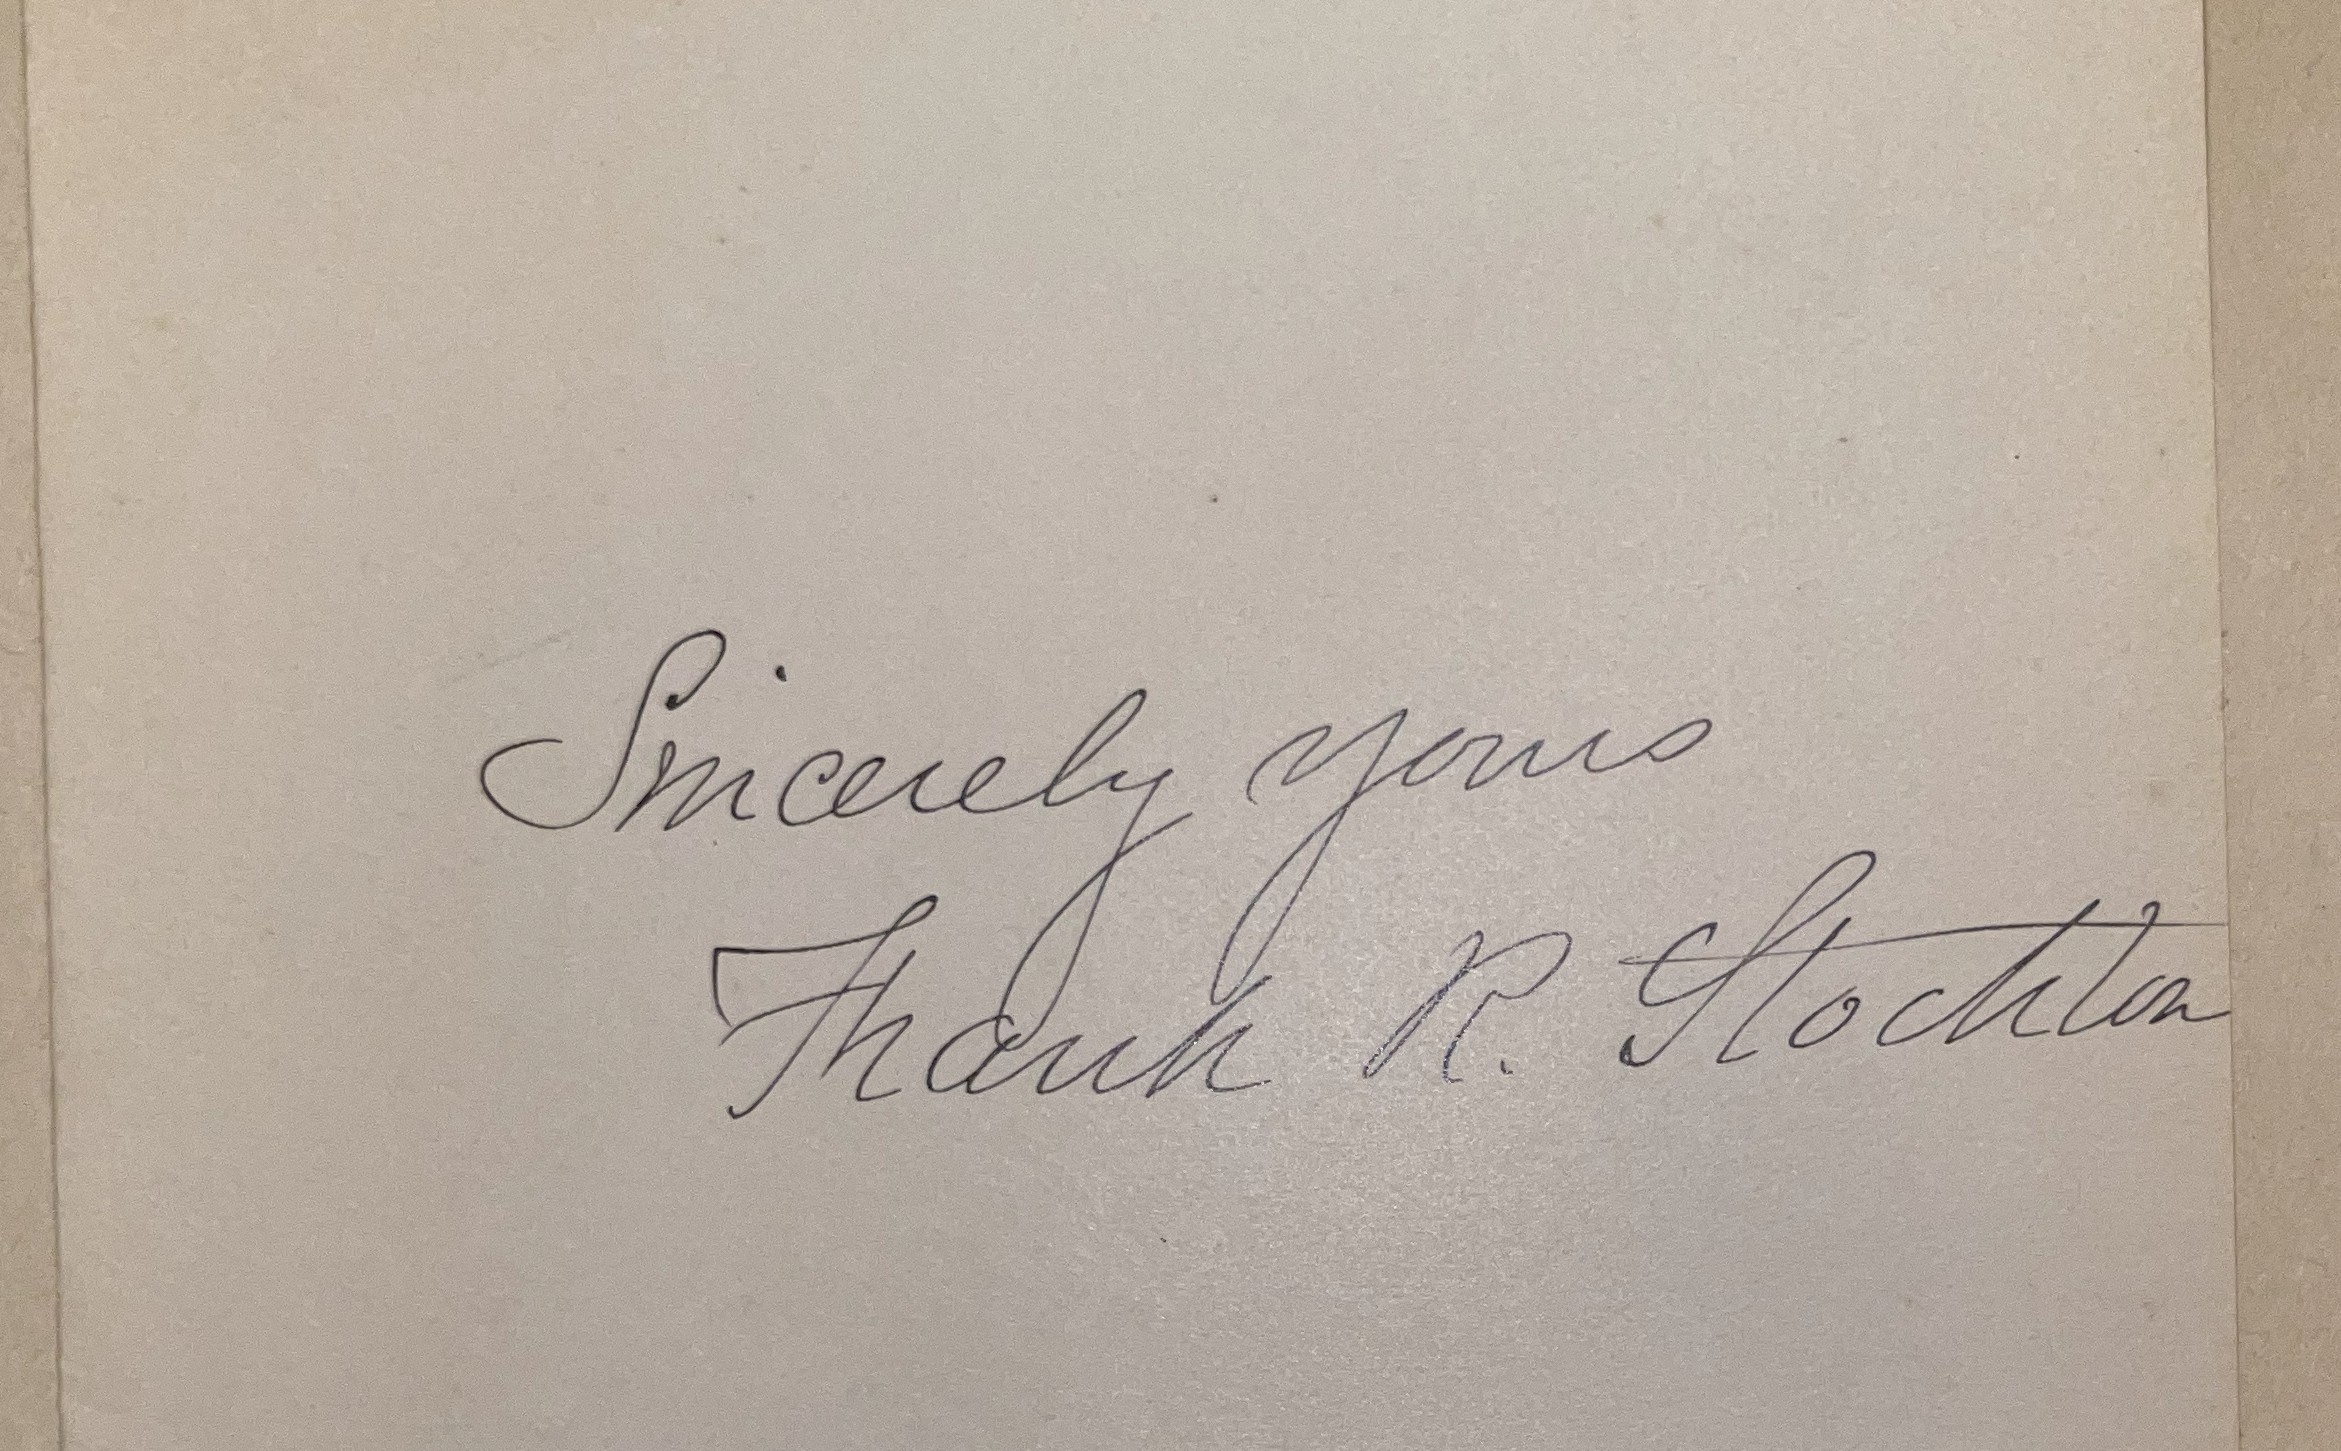 Sincerely yours
Frank R. Stockton